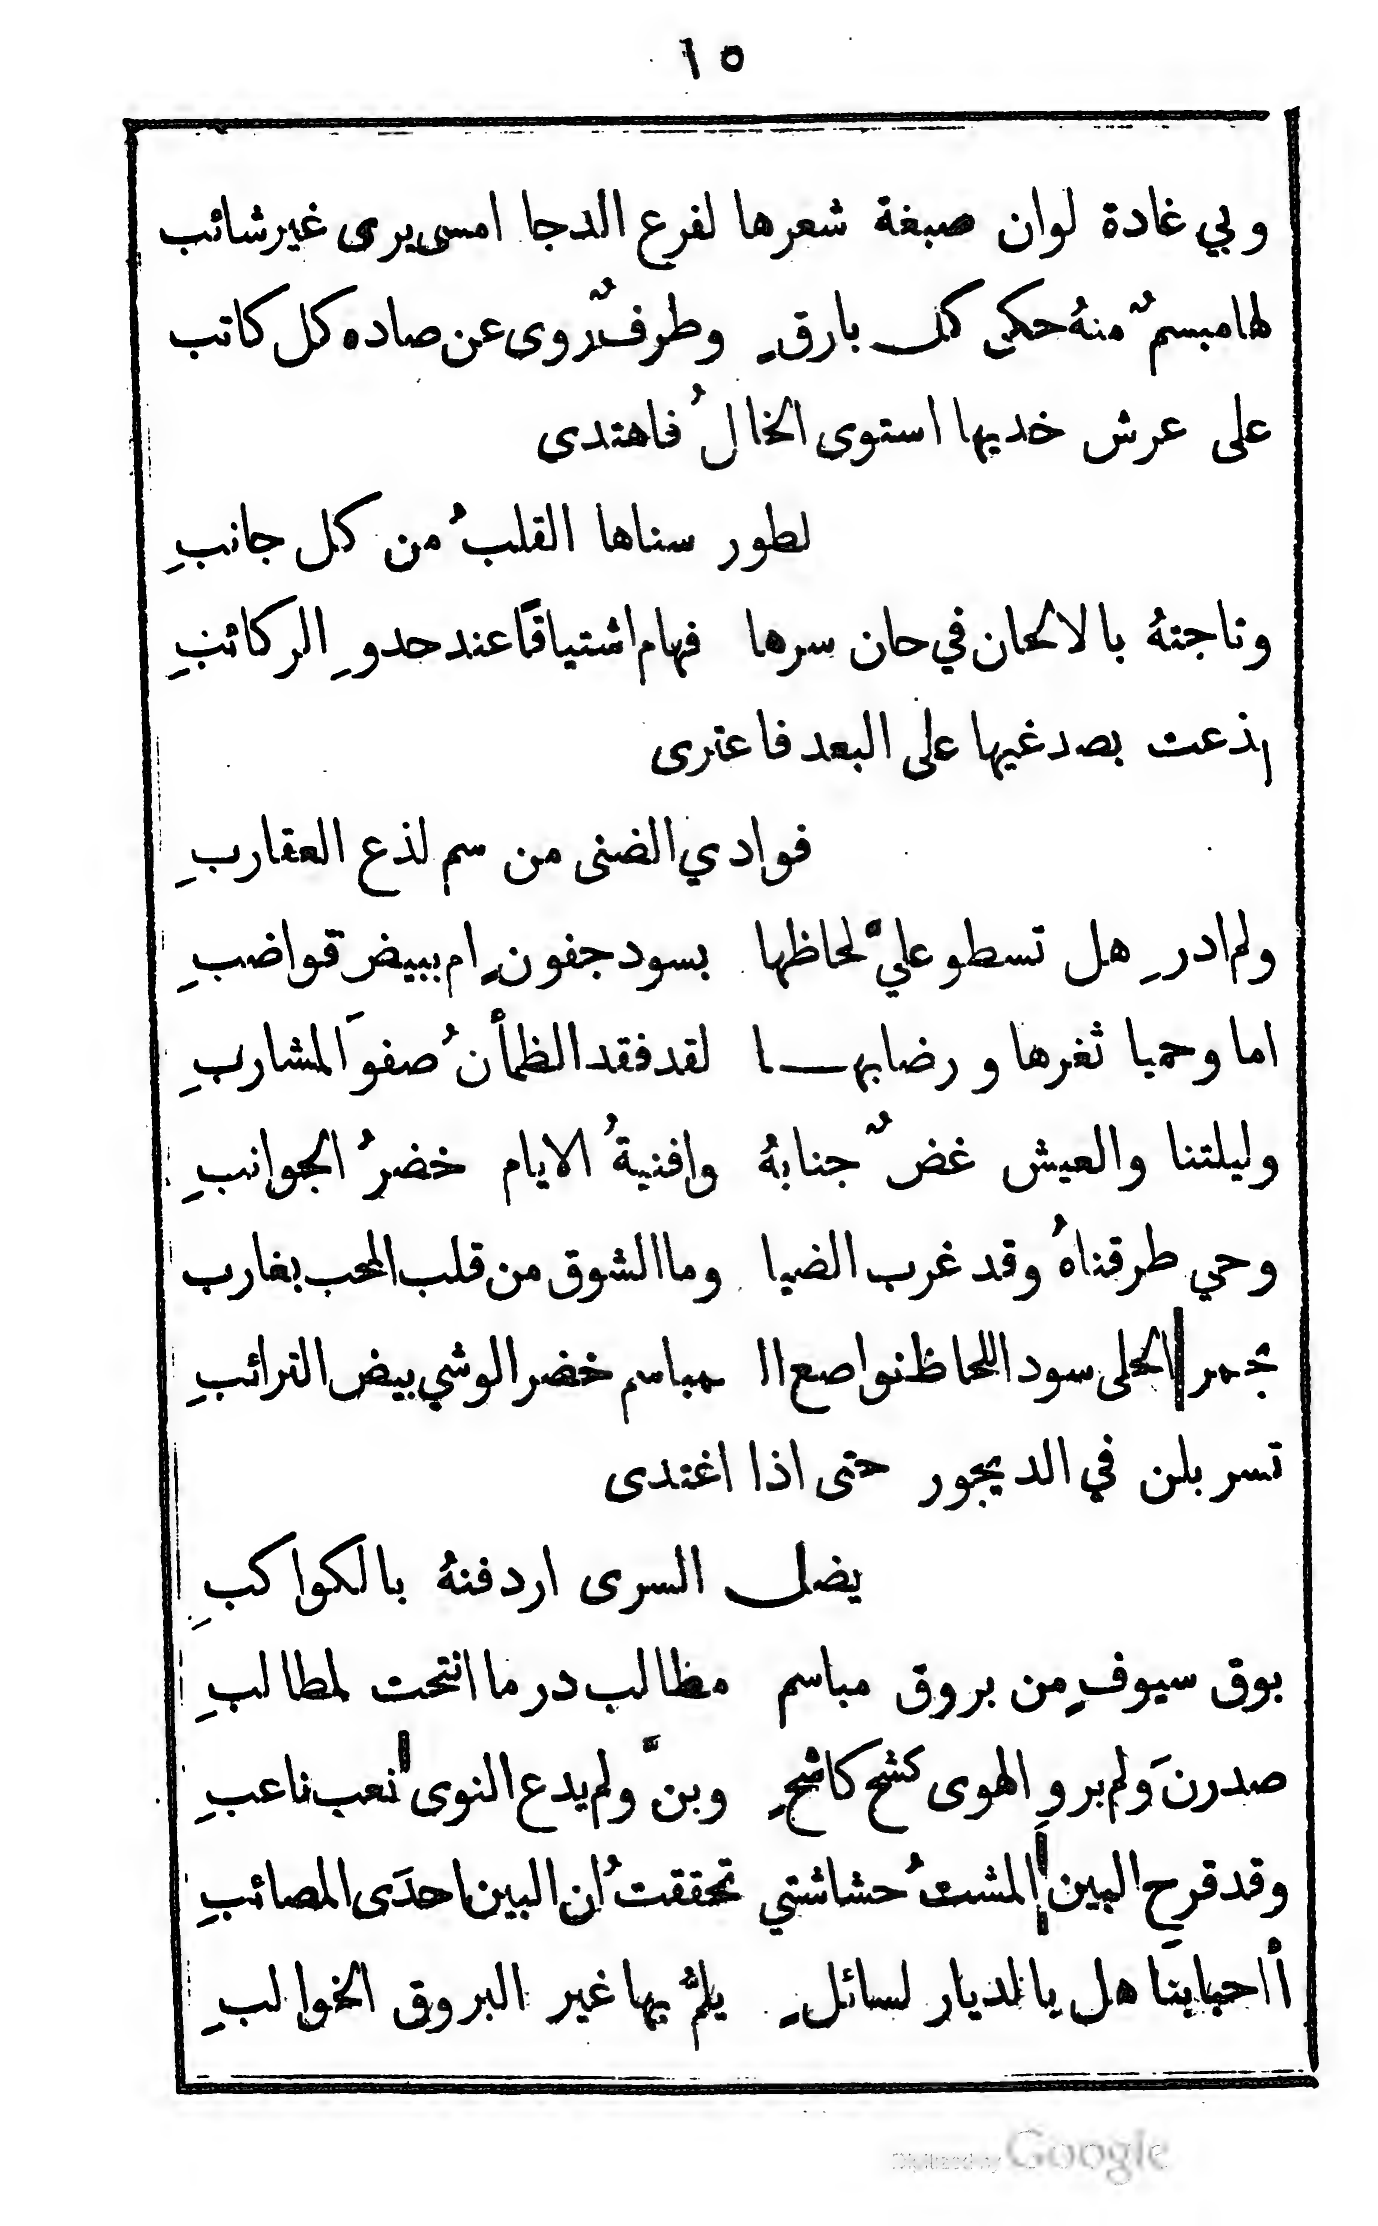 ١٥
وبي غادة لوان صبغة شعرها لفرع الدجا امسى يرى غير شائب
لها مبسمٌ منهُ حكى كل بارقٍ وطرفٌ روى عن صاده كل كاتب
على عرش خديها استوى الخالُ فاهتدى
لطور سناها القلبُ من كل جانبِ
وناجتهُ بالالحان في حان سرها فهام اشتياقًا عند حدوِ الركائبِ
رذعت بصدغيها على البعد فاعترى
فوادي الضنى من سم لذع العقاربِ
ولم ادرِ هل تسطو عليَّ لحاظها بسود جفونٍ ام ببيض قواضبِ
اما وحميا ثغرها ورضابهـــا لقد فقد الظمأنُ صفوَ المشاربِ
وليلتنا والعيش غضٌ جنابهُ وافنيةُ الايام خضرُ الجوانبِ
وحي طرقناهُ وقد غرب الضيا وما الشوق من قلب المحب بغارب
بحمر الحلى سود اللحاظ نواصع ال مباسم خضر الوشي بيض الترائبِ
تسربلن في الديجور حتى اذا اغتدى
يضل السرى اردفنهُ بالكواكبِ
بوق سيوفٍ من بروق مباسم مظالب در ما انتحت لمطالبِ
صدرنَ ولم يروِ الهوى كشح كاشحٍ وبنَّ ولم يدع النوى نعب ناعبِ
وقد قرح البين المشتُ حشاشتي تحققتُ ان البين احدَى المصائبِ
أاحبابنَا هل بالديار لسائلٍ يلمُّ بها غير البروق الخوالبِ
Digitized by Google